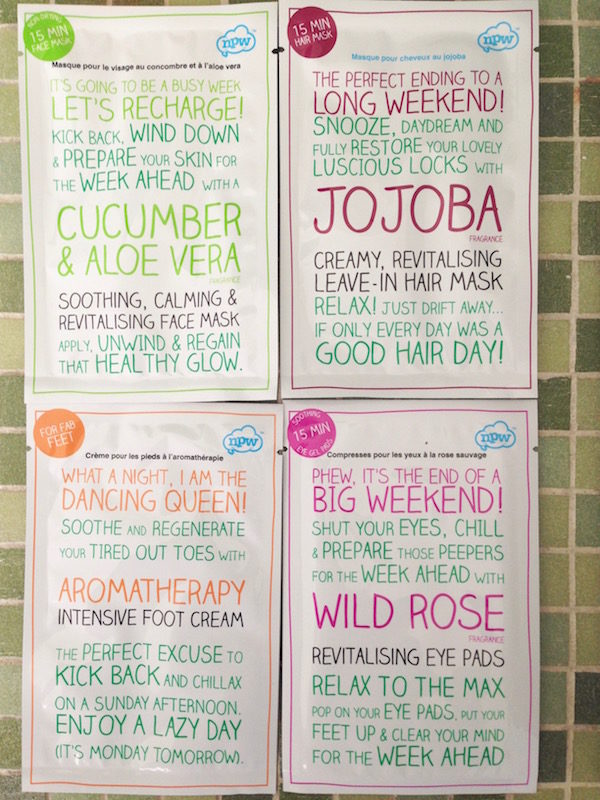 NON-DRYING
15 MIN
FACE MASK
npw
Masque pour le visage au concombre et à l'aloe vera
IT'S GOING TO BE A BUSY WEEK
LET'S RECHARGE!
KICK BACK, WIND DOWN
& PREPARE YOUR SKIN FOR
THE WEEK AHEAD WITH A
CUCUMBER
& ALOE VERA
FRAGRANCE
SOOTHING, CALMING &
REVITALISING FACE MASK
APPLY, UNWIND & REGAIN
THAT HEALTHY GLOW.
15 MIN
HAIR MASK
npw
Masque pour cheveux au jojoba
THE PERFECT ENDING TO A
LONG WEEKEND!
SNOOZE, DAYDREAM AND
FULLY RESTORE YOUR LOVELY
LUSCIOUS LOCKS WITH
JOJOBA
FRAGRANCE
CREAMY, REVITALISING
LEAVE-IN HAIR MASK
RELAX! JUST DRIFT AWAY...
IF ONLY EVERY DAY WAS A
GOOD HAIR DAY!
FOR FAB
FEET
npw
Crème pour les pieds à l'aromathérapie
WHAT A NIGHT, I AM THE
DANCING QUEEN!
SOOTHE AND REGENERATE
YOUR TIRED OUT TOES WITH
AROMATHERAPY
INTENSIVE FOOT CREAM
THE PERFECT EXCUSE TO
KICK BACK AND CHILLAX
ON A SUNDAY AFTERNOON.
ENJOY A LAZY DAY
(IT'S MONDAY TOMORROW).
SOOTHING
15 MIN
EYE GEL PADS
npw
Compresses pour les yeux à la rose sauvage
PHEW, IT'S THE END OF A
BIG WEEKEND!
SHUT YOUR EYES, CHILL
& PREPARE THOSE PEEPERS
FOR THE WEEK AHEAD WITH
WILD ROSE
FRAGRANCE
REVITALISING EYE PADS
RELAX TO THE MAX
POP ON YOUR EYE PADS, PUT YOUR
FEET UP & CLEAR YOUR MIND
FOR THE WEEK AHEAD